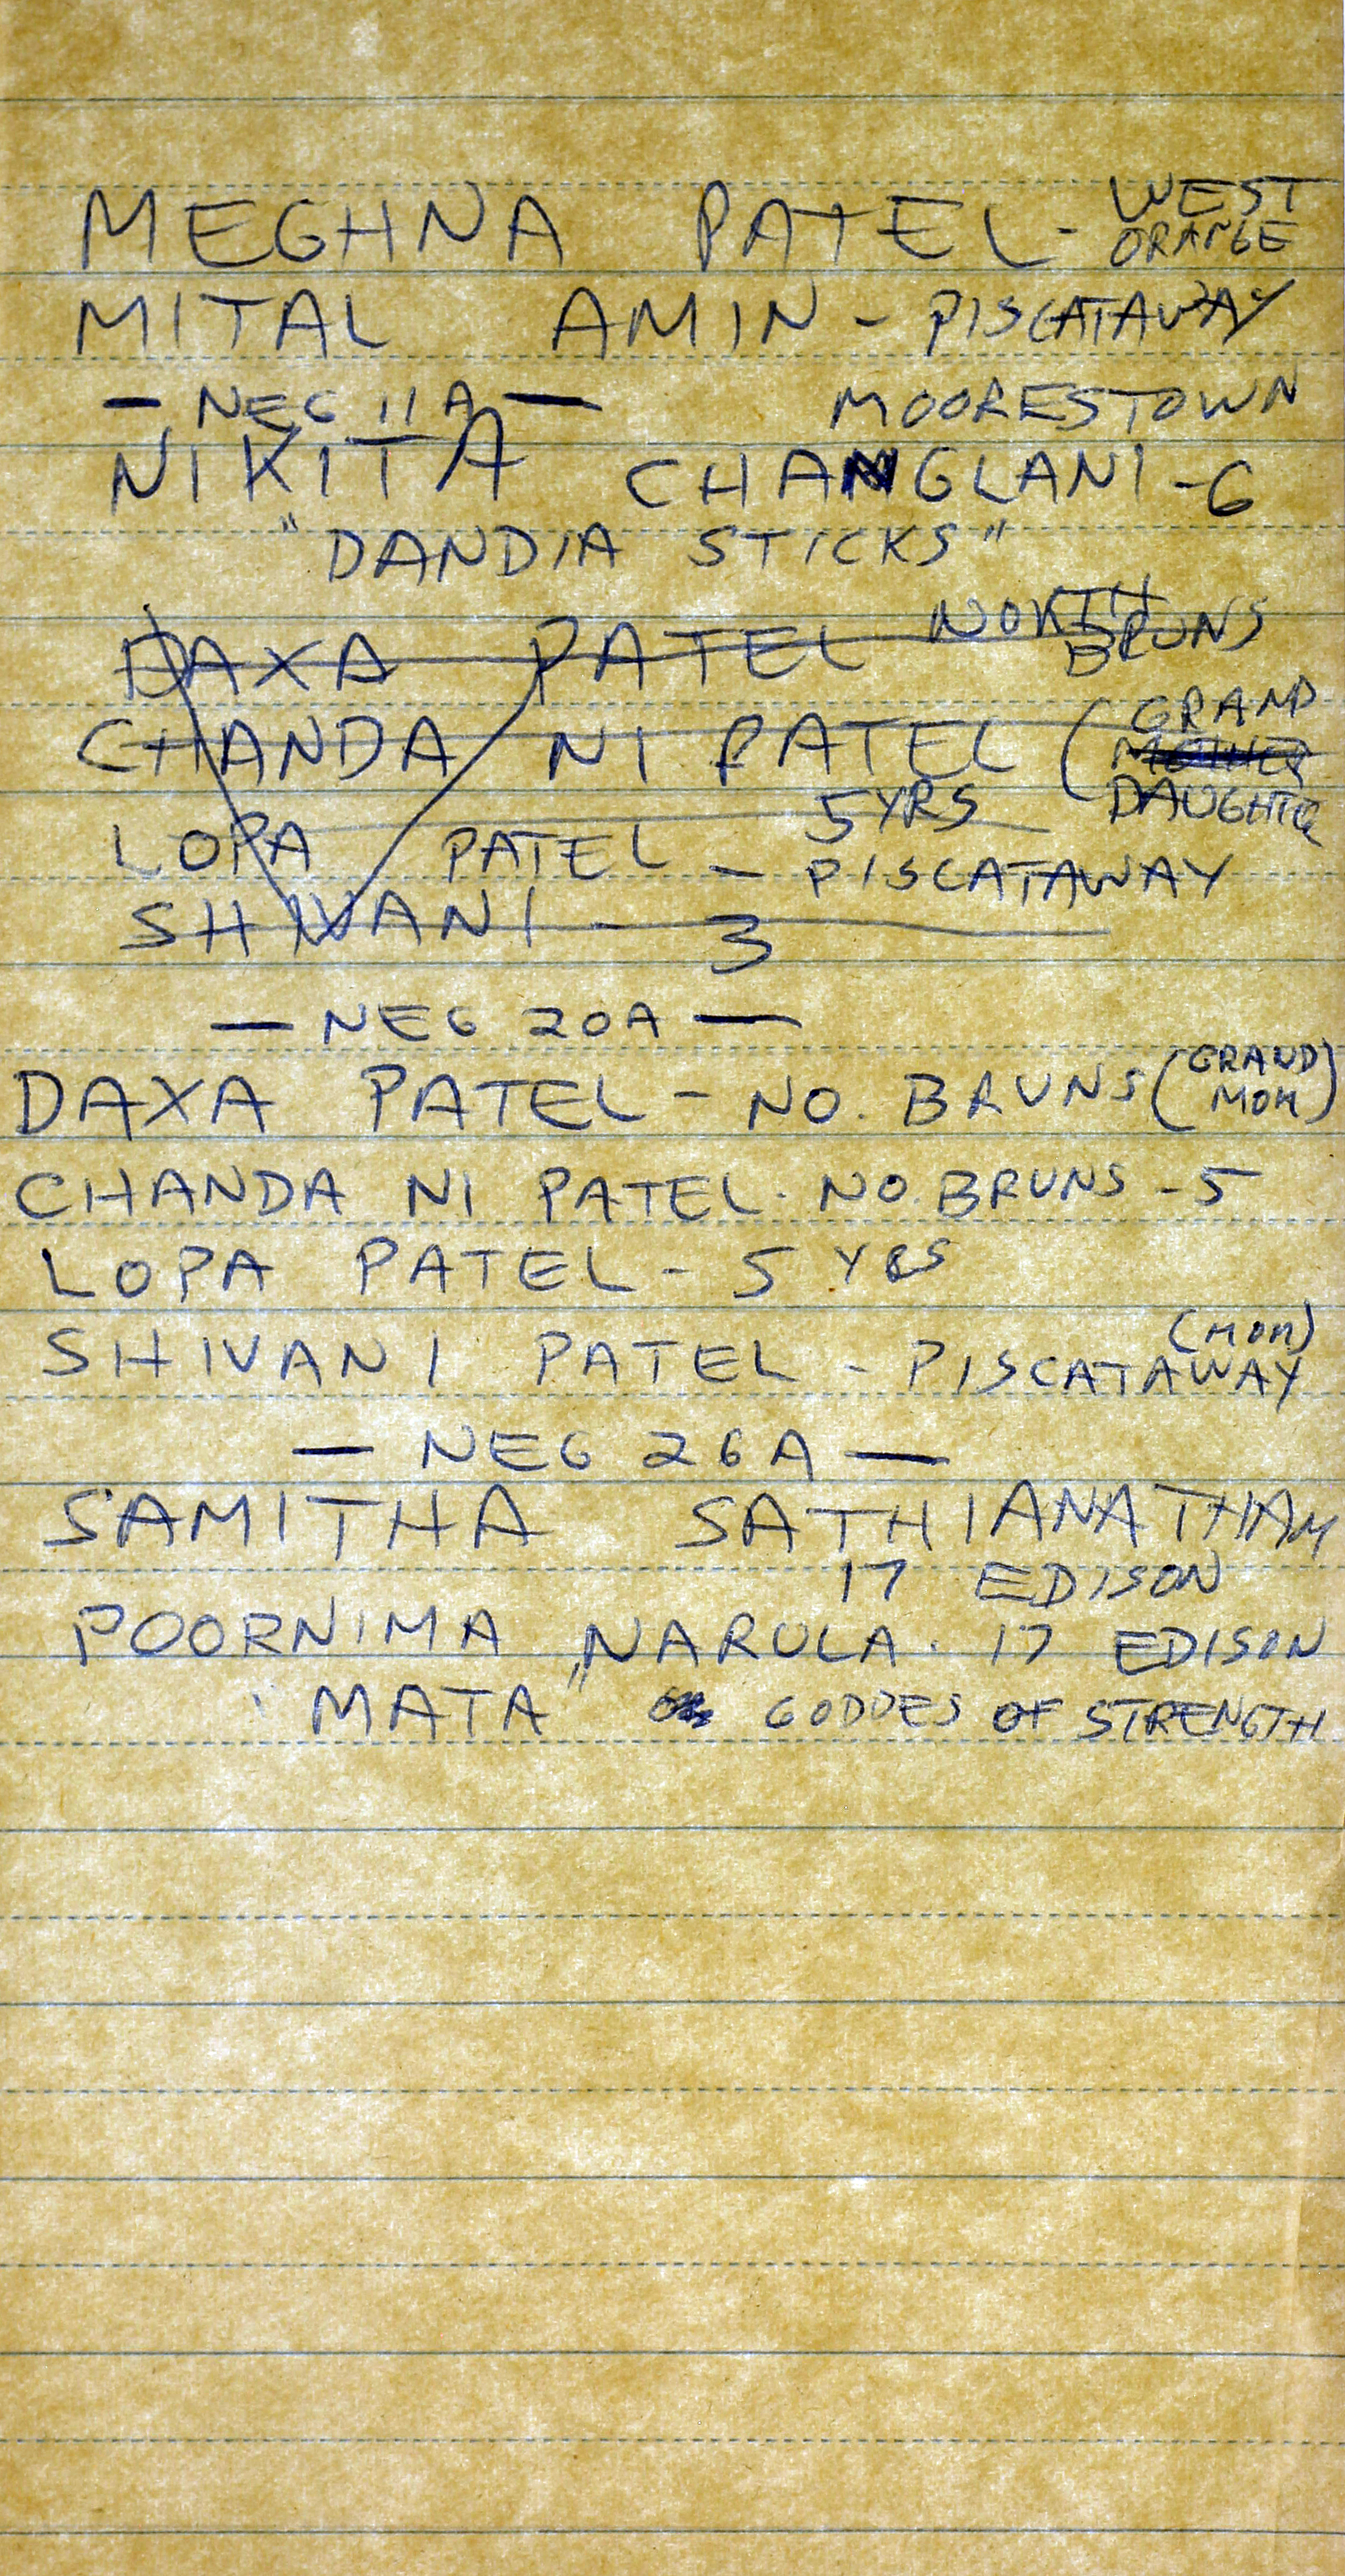 MEGHNA PATEL - WEST ORANGE
MITAL AMIN - PISCATAWAY
— NEG 11A —
MOORESTOWN
NIKITA CHANGLANI - 6
"DANDIA STICKS"
DAXA PATEL NORTH BRUNS
CHANDA NI PATEL (GRAND MOTHER DAUGHTER
5 YRS
LOPA PATEL - PISCATAWAY
SHIVANI - 3
— NEG 20A —
DAXA PATEL - NO. BRUNS (GRAND MOM)
CHANDA NI PATEL. NO. BRUNS - 5
LOPA PATEL - 5 YRS
SHIVANI PATEL - PISCATAWAY (MOM)
— NEG 26A —
SAMITHA SATHIANATHAM
17 EDISON
POORNIMA NARULA. 17 EDISON
"MATA" GODDES OF STRENGTH